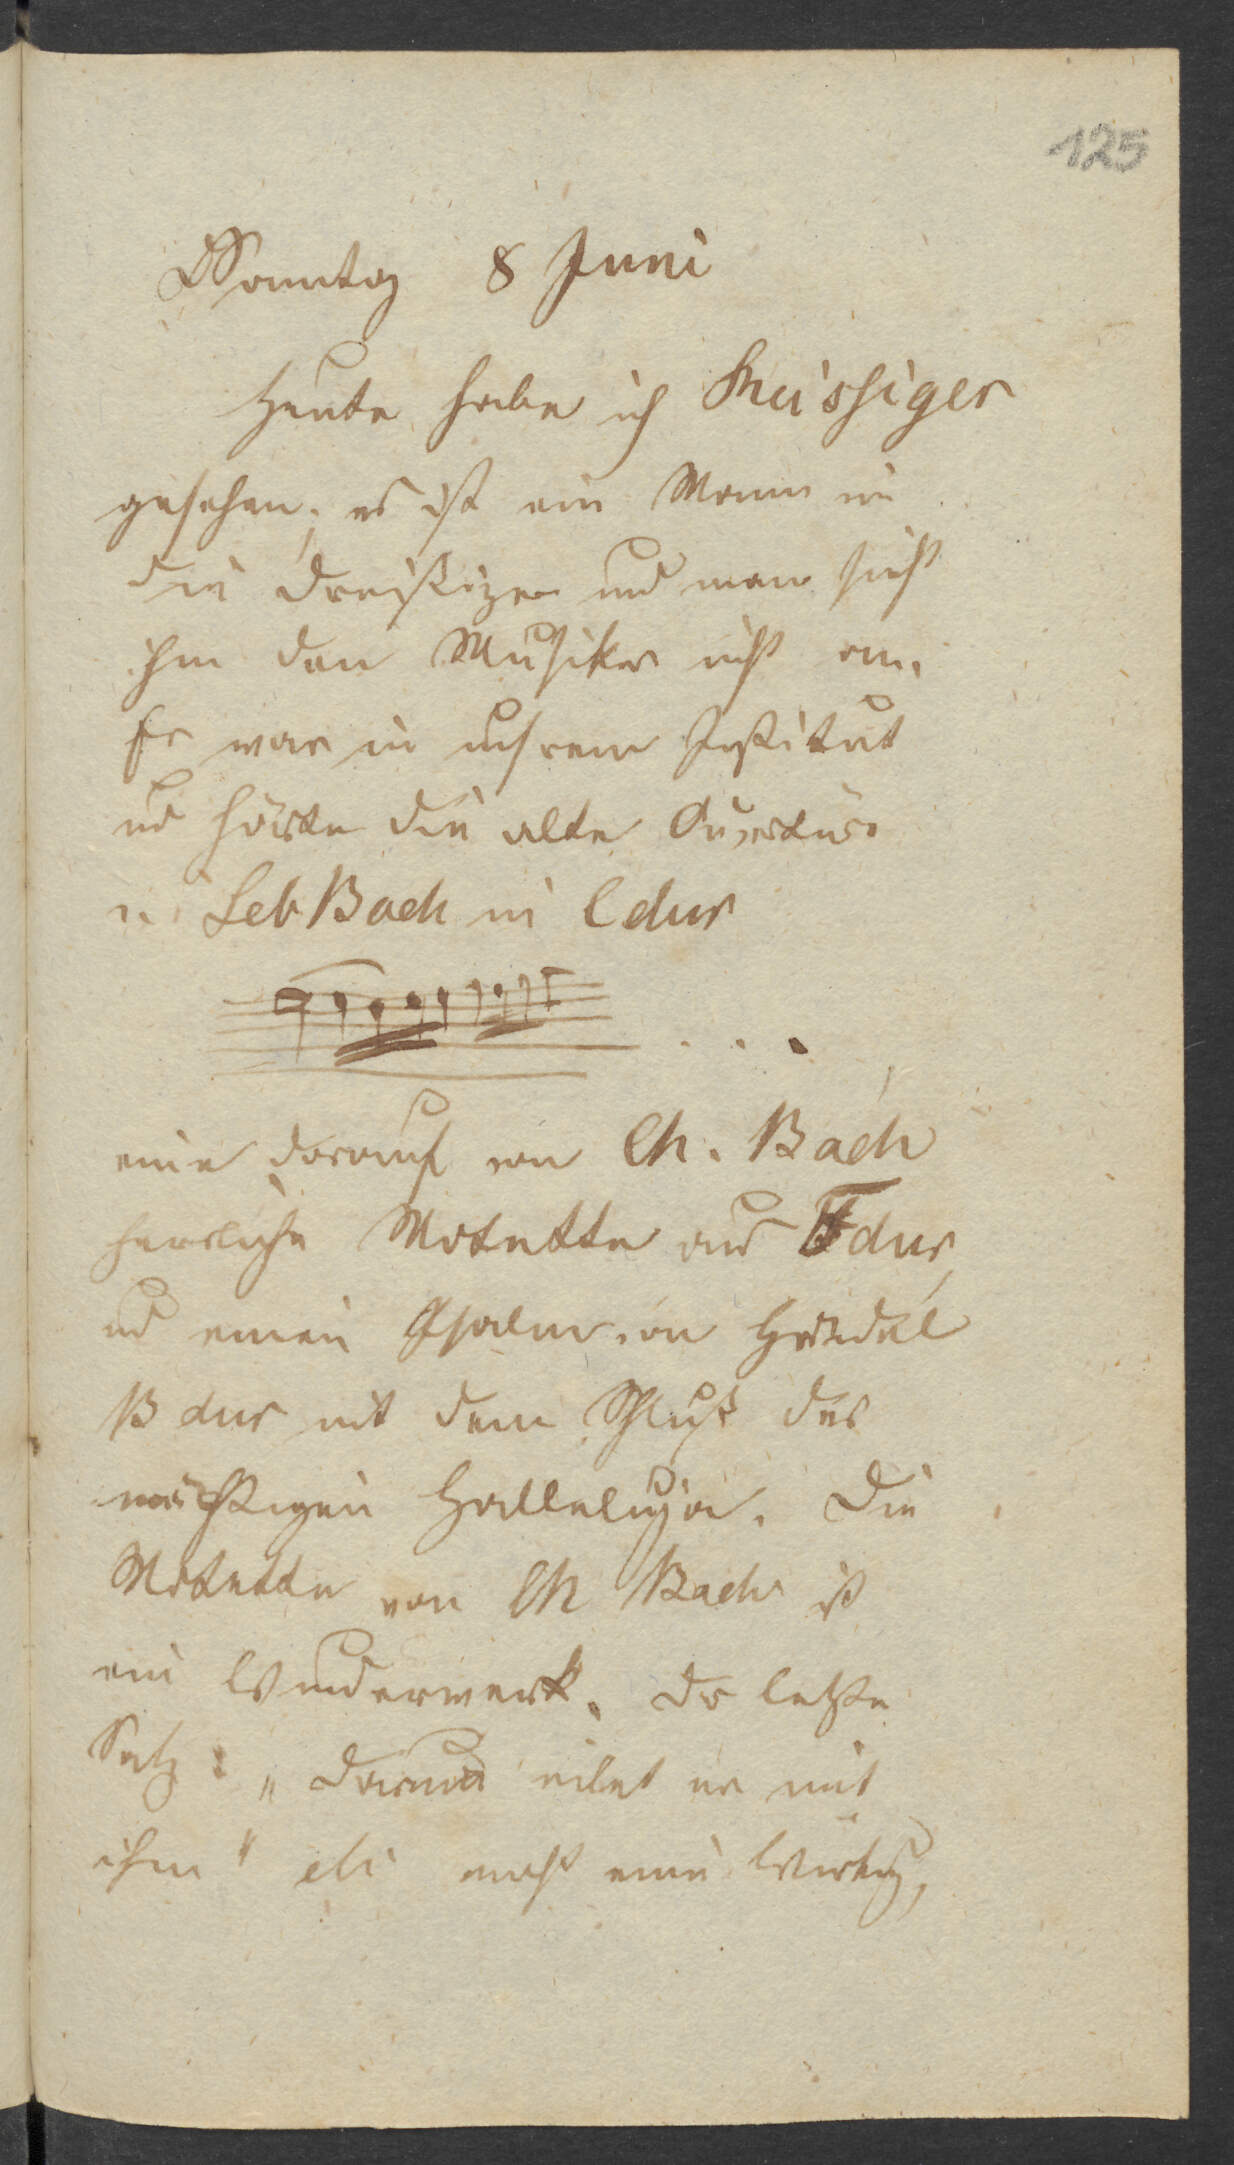 125
Sonntag 8 Juni
Heute habe ich Reissiger
gesehen; es ist ein Mann in
die Dreißiger und man sieht
ihm den Musiker nicht an.
Er war in unsrem Institut
und hörte die alte Ouvertüre
v. Seb Bach in C dur
. . .
eine darauf von Ch. Bach
herrliche Motette aus F dur
und einen Psalm von Händel
B dur mit dem Schluß des
mächtigen Halleluja. Die
Motette von Ch Bach ist
ein Wunderwerk. Der letzte
Satz: „ darum eilet er mit
ihm " etc macht eine Wirkung,